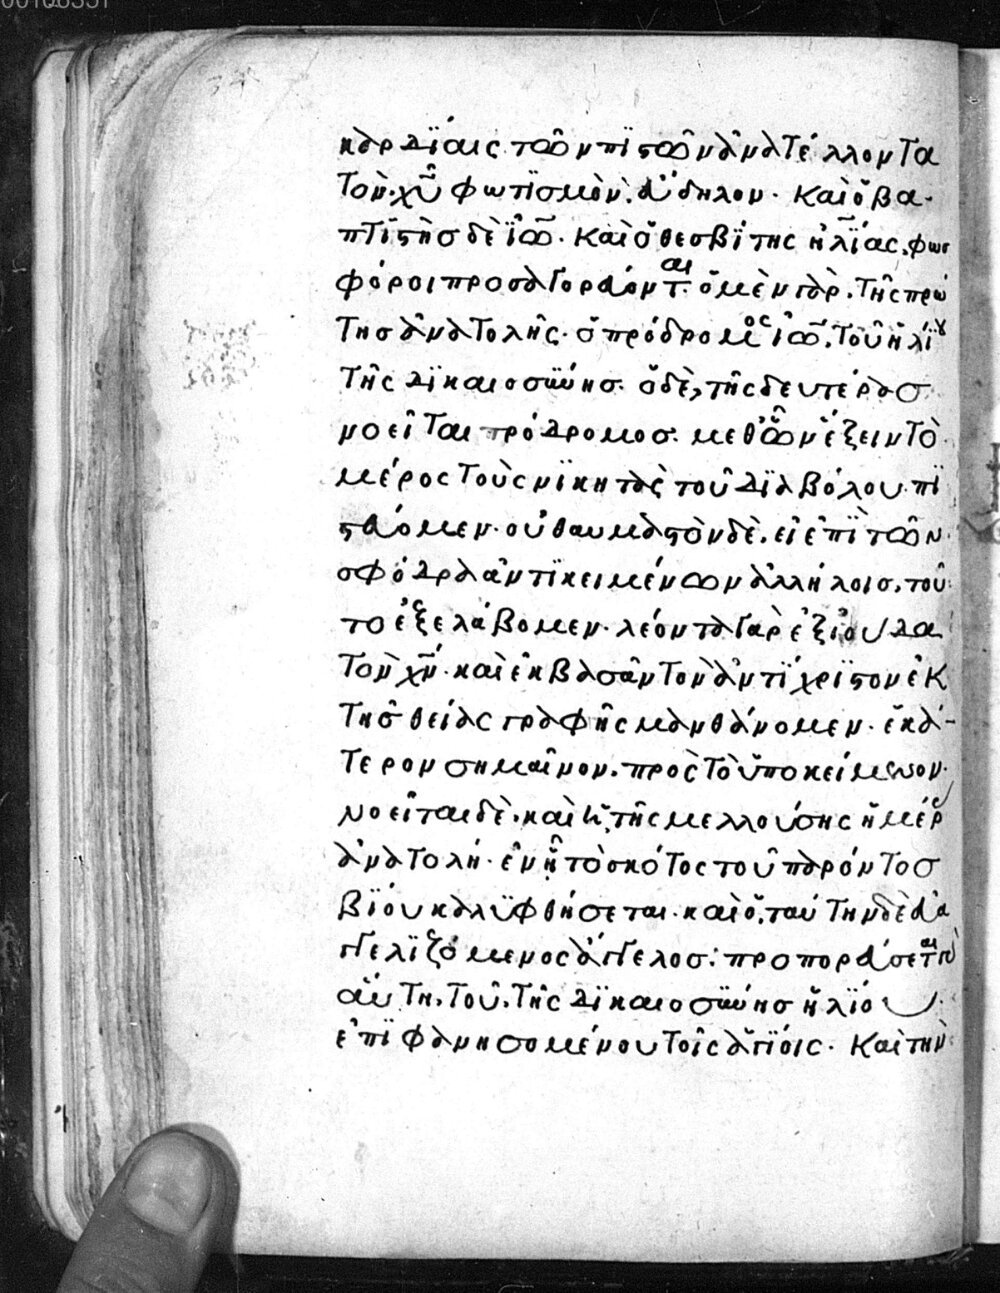 καρδΐαις τῶν πϊστῶν ἀνατέλλοντα
τὸν χῦ φωτϊσμὸν. ἄδηλον. καὶ ὁ βα-
πτιστὴσ δὲ ϊω. καὶ ὁ θεσβΐτης ἠλΐας. φωσ
φόροι προσαγορεύονται. ὁ μὲν γὰρ. τῆς πρώ
της ἀνατολῆς. ὁ πρόδρομος ϊω. τοῦ ἡλΐου
τῆς δϊκαιοσύνησ. ὁ δὲ, τῆς δευτέρασ
νοεῖται πρόδρομοσ. μεθ ὧν ἕξειν τὸ
μέρος τοὺς νϊκητὰς τοῦ δϊαβόλου πϊ
στεύομεν. οὐ θαυμαστὸν δὲ. εἰ ἐπῒ τῶν
σφόδρα ἀντϊκειμένων ἀλλήλοισ. τοῦ
το ἐξελάβομεν. λέοντα γὰρ ἐξ ἰούδα
τὸν χν. καὶ ἐκ βασὰν τὸν ἀντϊχρϊστον ἐκ
τῆσ θείας γραφῆς μανθάνομεν. ἑκά-
τερον σημαῖνον. πρὸς τὸ ὑποκείμενον.
νοεῖται δὲ. καὶ ἡ τῆς μελλούσης ἡμέρ
ἀνατολή. ἐν ᾗ τὸ σκότος τοῦ παρόντοσ
βΐου καλυφθήσεται. καὶ ὁ. ταύτην δὲ εὐα
γγελϊζόμενος ἄγγελοσ: προπορεύσεται
αὐτη. τοῦ. τῆς δϊκαιοσύνησ ἡλΐου.
ἐπϊφανησομένου τοῖς ἁγΐοις. καὶ τὴν